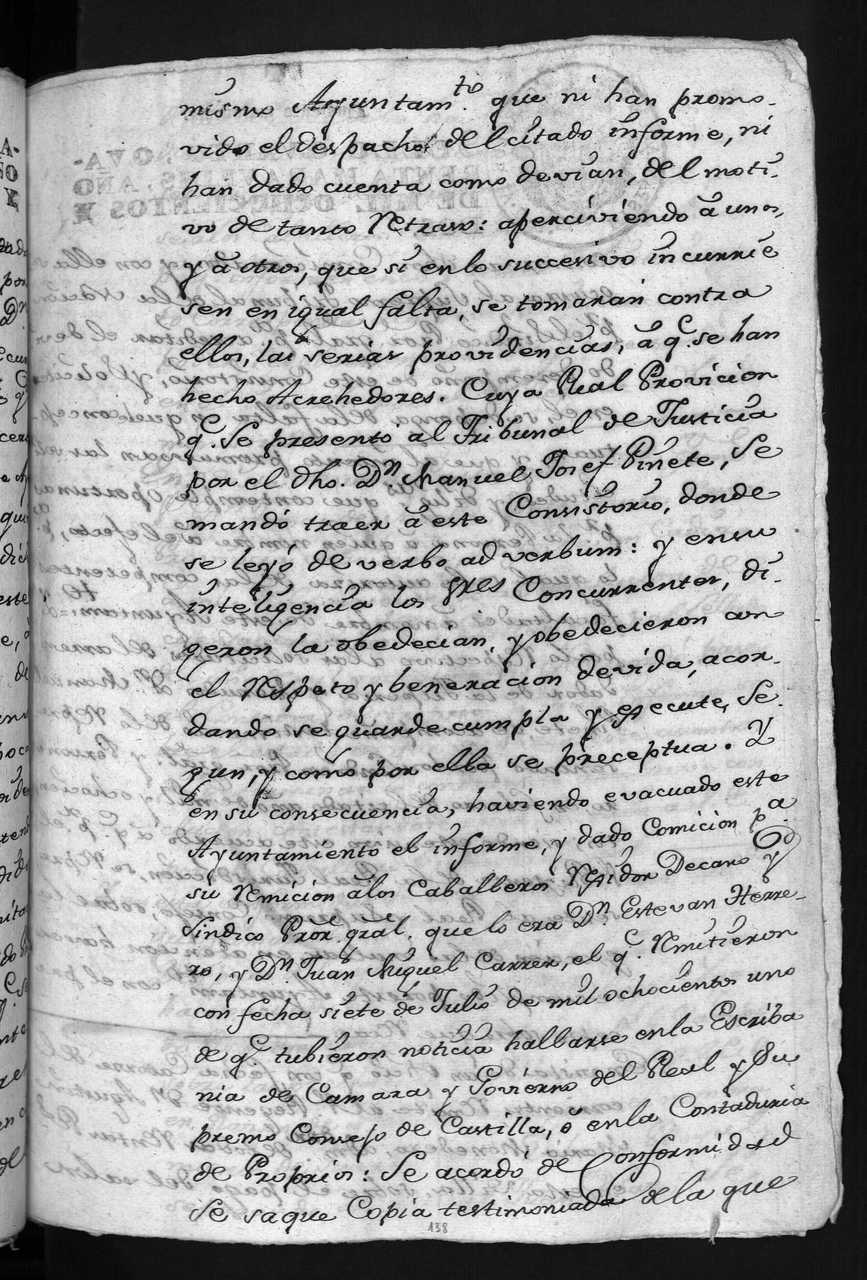 mismo Ayuntam.to que ni han promo-
vido el despacho del citado informe, ni
han dado cuenta como devian, del moti-
vo de tanto Retraso: aperciviendo â unos,
y â otros, que si en lo succesivo incurrie
sen en igual falta, se tomarán contra
ellos, las serias providencias, â q.e se han
hecho Acrehedores. Cuya Real Provicion
q.e Se presento al Tribunal de Justicia
por el dho. D.n Manuel Josef Piñete, Se
mandó traer â este Consistorio, donde
se leyó de verbo ad verbum: y en su
inteligencia los Sres Concurrentes, di-
geron la obedecian, y obedecieron con
el Respeto y beneracion devida, acor-
dando se guarde cumpla y egecute, se-
gun, y como por ella se preceptua. Y
en su consecuencia, haviendo evacuado este
Ayuntamiento el informe, y dado Comicion p.a
su Remicion â los Caballeros Regidor Decano y
Sindico Pror. gral. que lo era D.n Estevan Herre-
ro, y D.n Juan Miguel Carrer, el q.e Remitieron
con fecha siete de Julio de mil ochocientos uno
de q.e tubieron noticia hallarse en la Escriba
nia de Camara y Govierno del Real y Su
premo Consejo de Castilla, ô en la Contaduria
de Proprios: Se acordó de Conformidad
se saque Copia testimoniada de la que
138